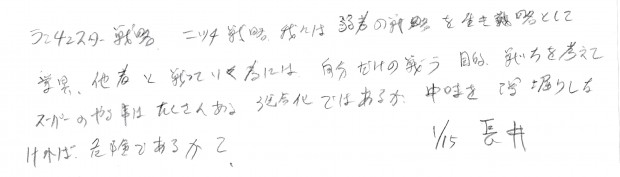 ランチェスター戦略 ニッチ戦略 我々は弱者の戦略を 戦略として
学界、他者と戦っていく為には 自分だけの戦う目的、戦い方を考えて
スーパーのやる事はたくさんある 弱点化ではあるが 中味を 掘りしな
ければ 危険であるかと。
1/15 長井